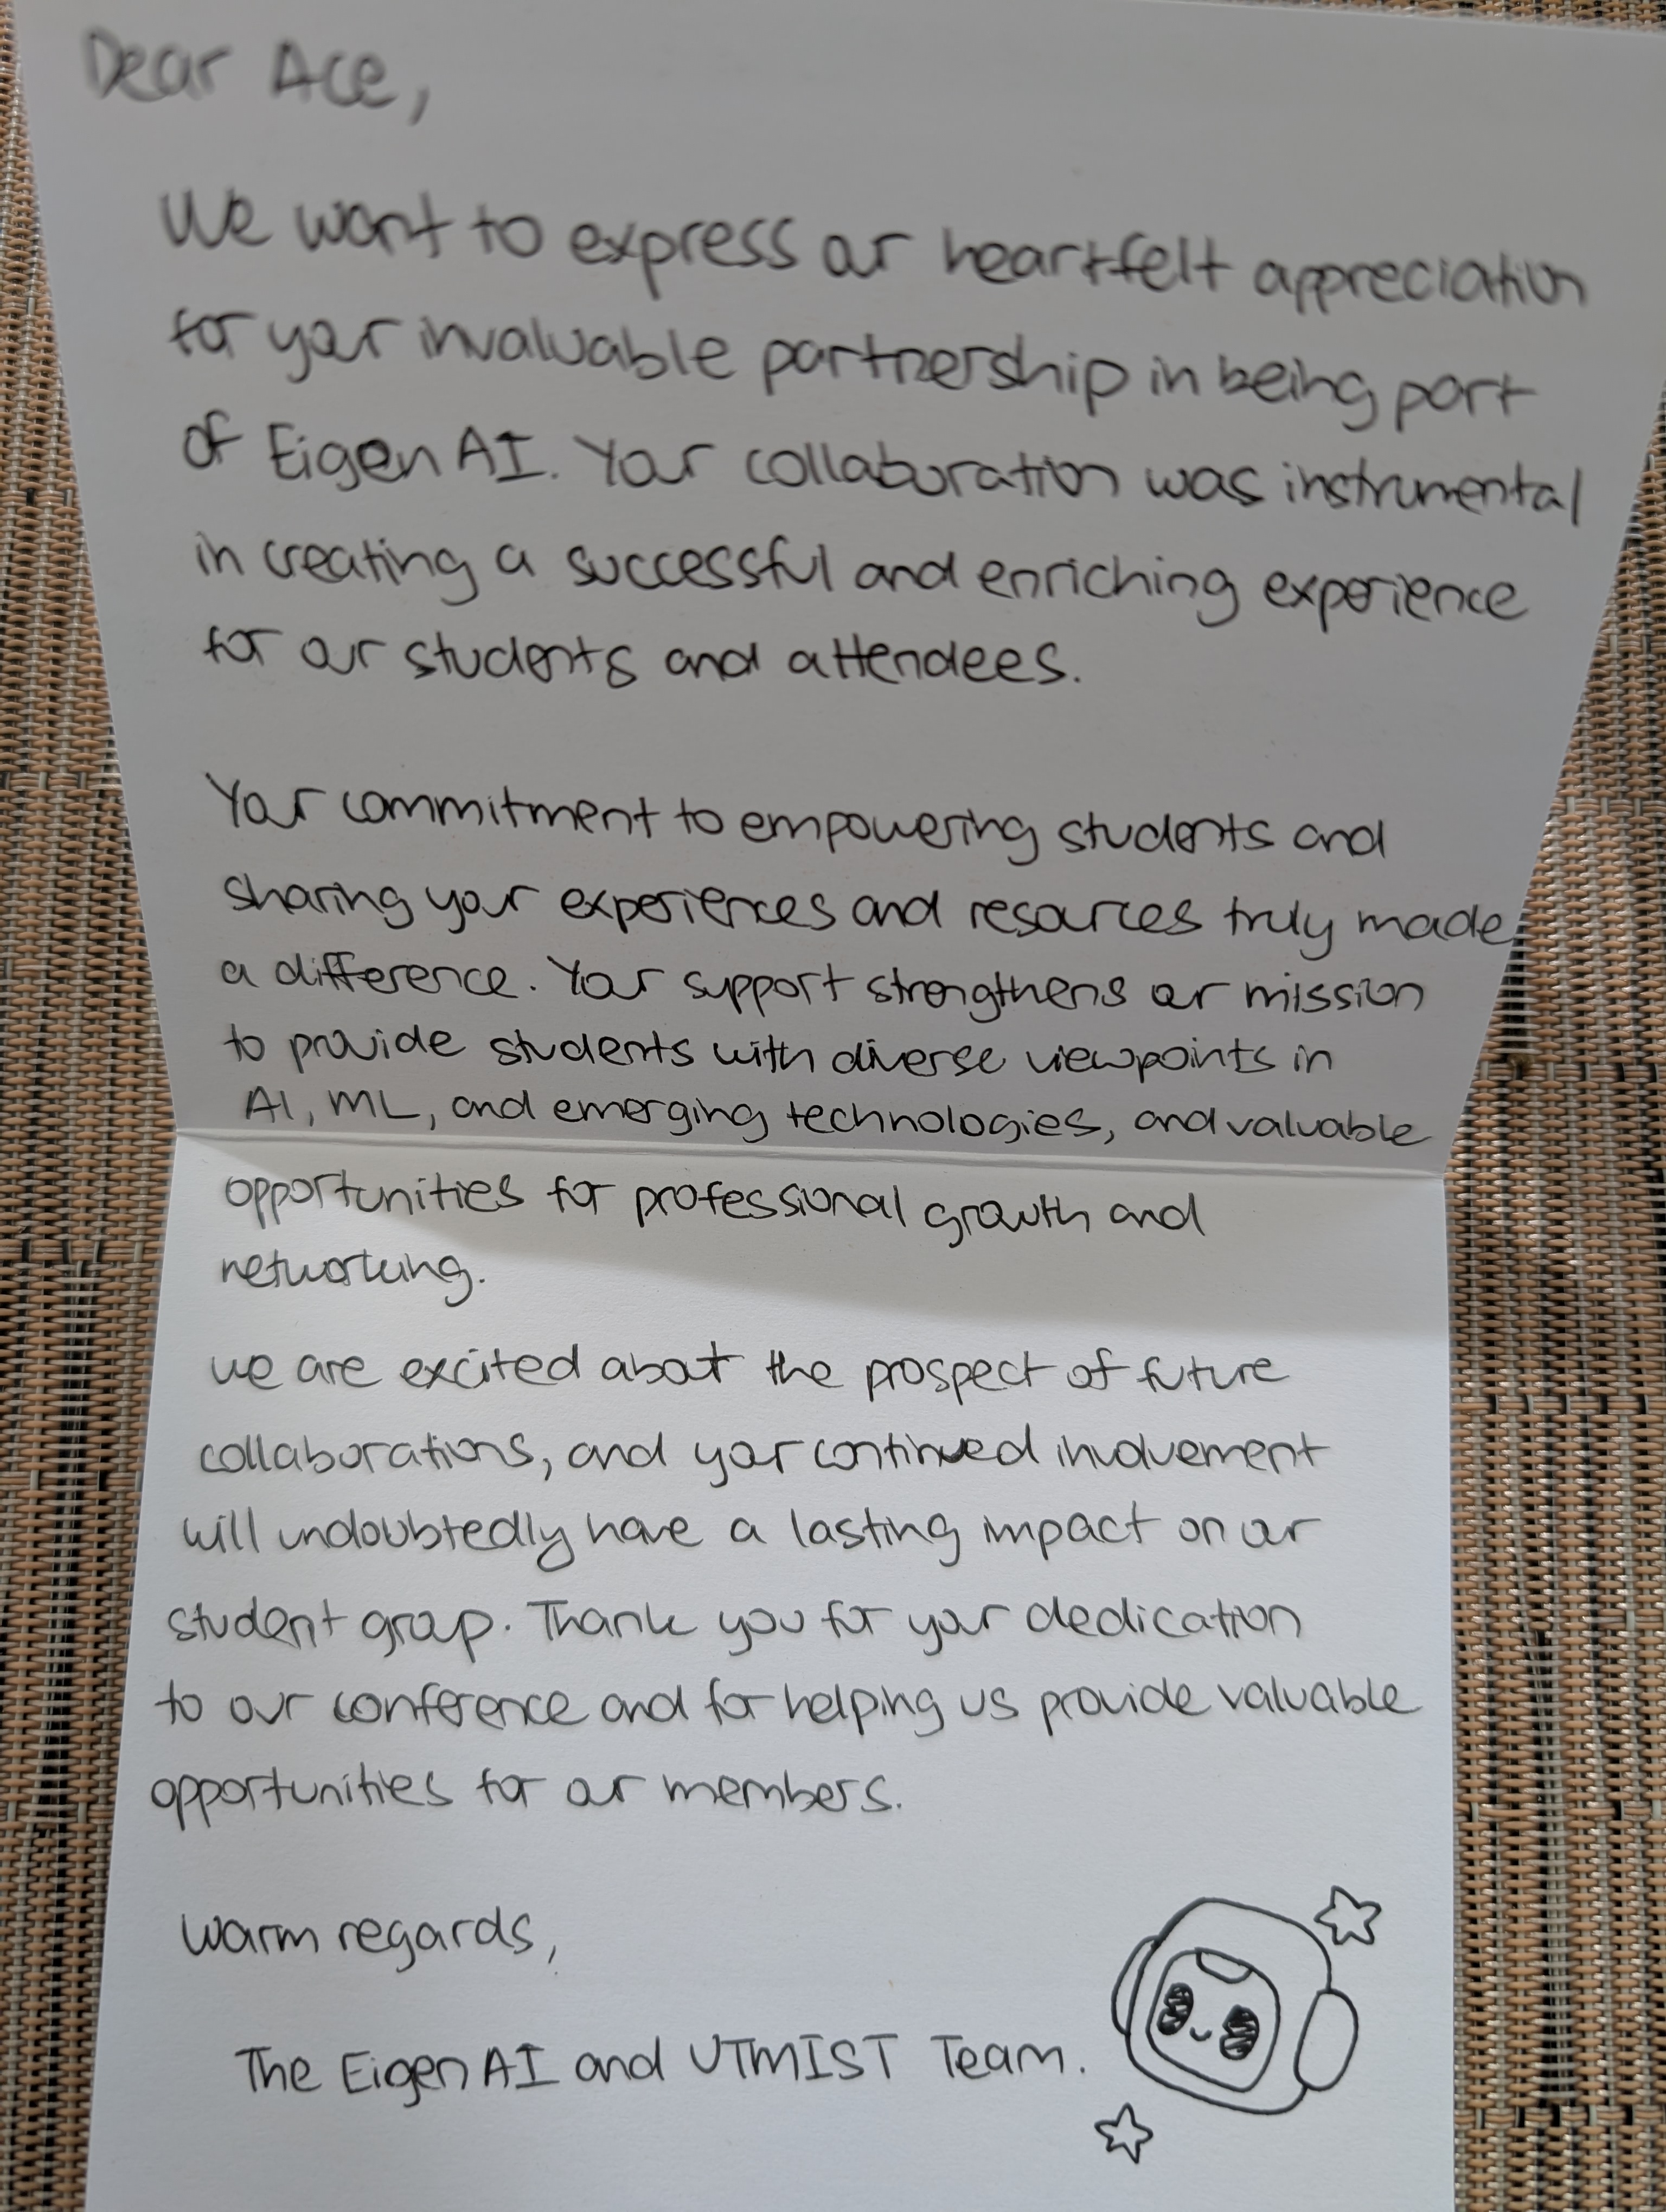 Dear Ace,
We want to express our heartfelt appreciation
for your invaluable partnership in being part
of Eigen AI. Your collaboration was instrumental
in creating a successful and enriching experience
for our students and attendees.
Your commitment to empowering students and
sharing your experiences and resources truly made
a difference. Your support strengthens our mission
to provide students with diverse viewpoints in
AI, ML, and emerging technologies, and valuable
opportunities for professional growth and
networking.
we are excited about the prospect of future
collaborations, and your continued involvement
will undoubtedly have a lasting impact on our
student group. Thank you for your dedication
to our conference and for helping us provide valuable
opportunities for our members.
Warm regards,
The Eigen AI and UTMIST Team.